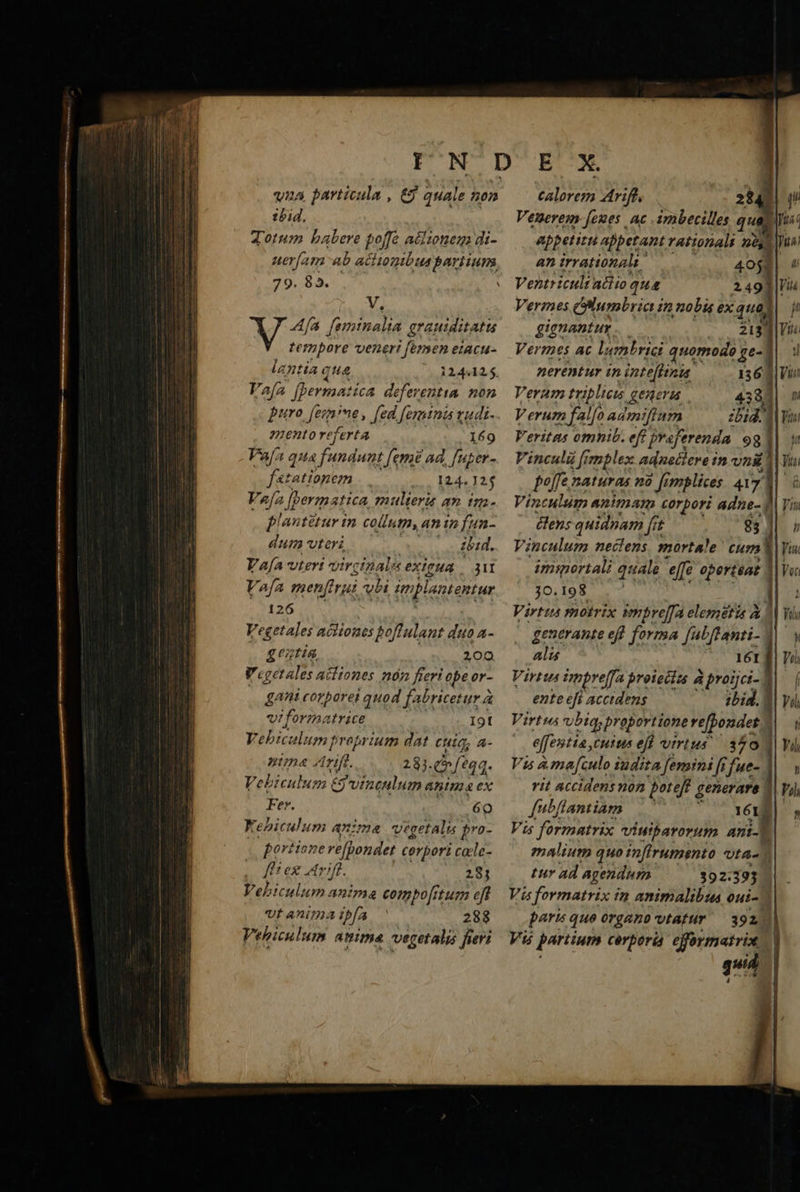 INDEX.
vna particula, & quale non
ibid.
Totum habere posse actionem di-
uersam ab actionibus partium,
79. 82.
V.
VAsa seminalia grauiditatis
tempore veneri semen eiacu-
lantia quæ 124.125.
Vasa spermatica deferentia non
puro semine, sed seminis rudi-
mento referta 169
Vasa qua fundunt semē ad super-
fœtationem 124.125
Vasa spermatica mulieris an im-
plantētur in collum, an in fun-
dum vteri ibid.
Vasa vteri virginalis exigua 311
Vasa menstrui vbi implantentur
126
Vegetales actiones postulant duo a-
gentia 200
Vegetales actiones nón fieri ope or-
gani corporei quod fabricetur à
vi formatrice 191
Vehiculum proprium dat cuiq; a-
nimæ Arist. 283.& seqq.
Vehiculum & vinculum animæ ex
Fer. 69
Vehiculum animæ vegetalis pro-
portione respondet corpori cœle-
sti ex Arist. 283
Vehiculum animæ compositum est
vt anima ipsa 288
Vehiculum animæ vegetalis fieri
calorem Arist. 284
Venerem senes ac imbecilles
appetitu appetant rationali
an irrationali 405
Ventriculi actio quæ 249
Vermes & lumbrici in nobis ex quo
gignantur 213
Vermes ac lumbrici quomodo ge-
nerentur in intestinis 136
Verum triplicis generis 438
Verum falso admistum ibid.
Veritas omnib. est præferenda 98
Vinculū simplex adnectere in vnū
posse naturas nō simplices 417
Vinculum animam corpori adne-
ctens quidnam sit 83
Vinculum nectens mortale cum
immortali quale esse oporteat
30.198
Virtus motrix impressa elemētis à
generante est forma substanti-
alis 161
Virtus impressa proiectis à proijci-
ente est accidens ibid.
Virtus vbiq; proportione respondet
essentiæ, cuius est virtus 370
Vis à masculo indita semini si fue-
rit accidens non potest generare
substantiam 161
Vis formatrix viuiparorum ani-
malium quo instrumento vta-
tur ad agendum 392.393
Vis formatrix in animalibus oui-
paris quo organo vtatur 392
Vis partium corporis efformatrix
quid